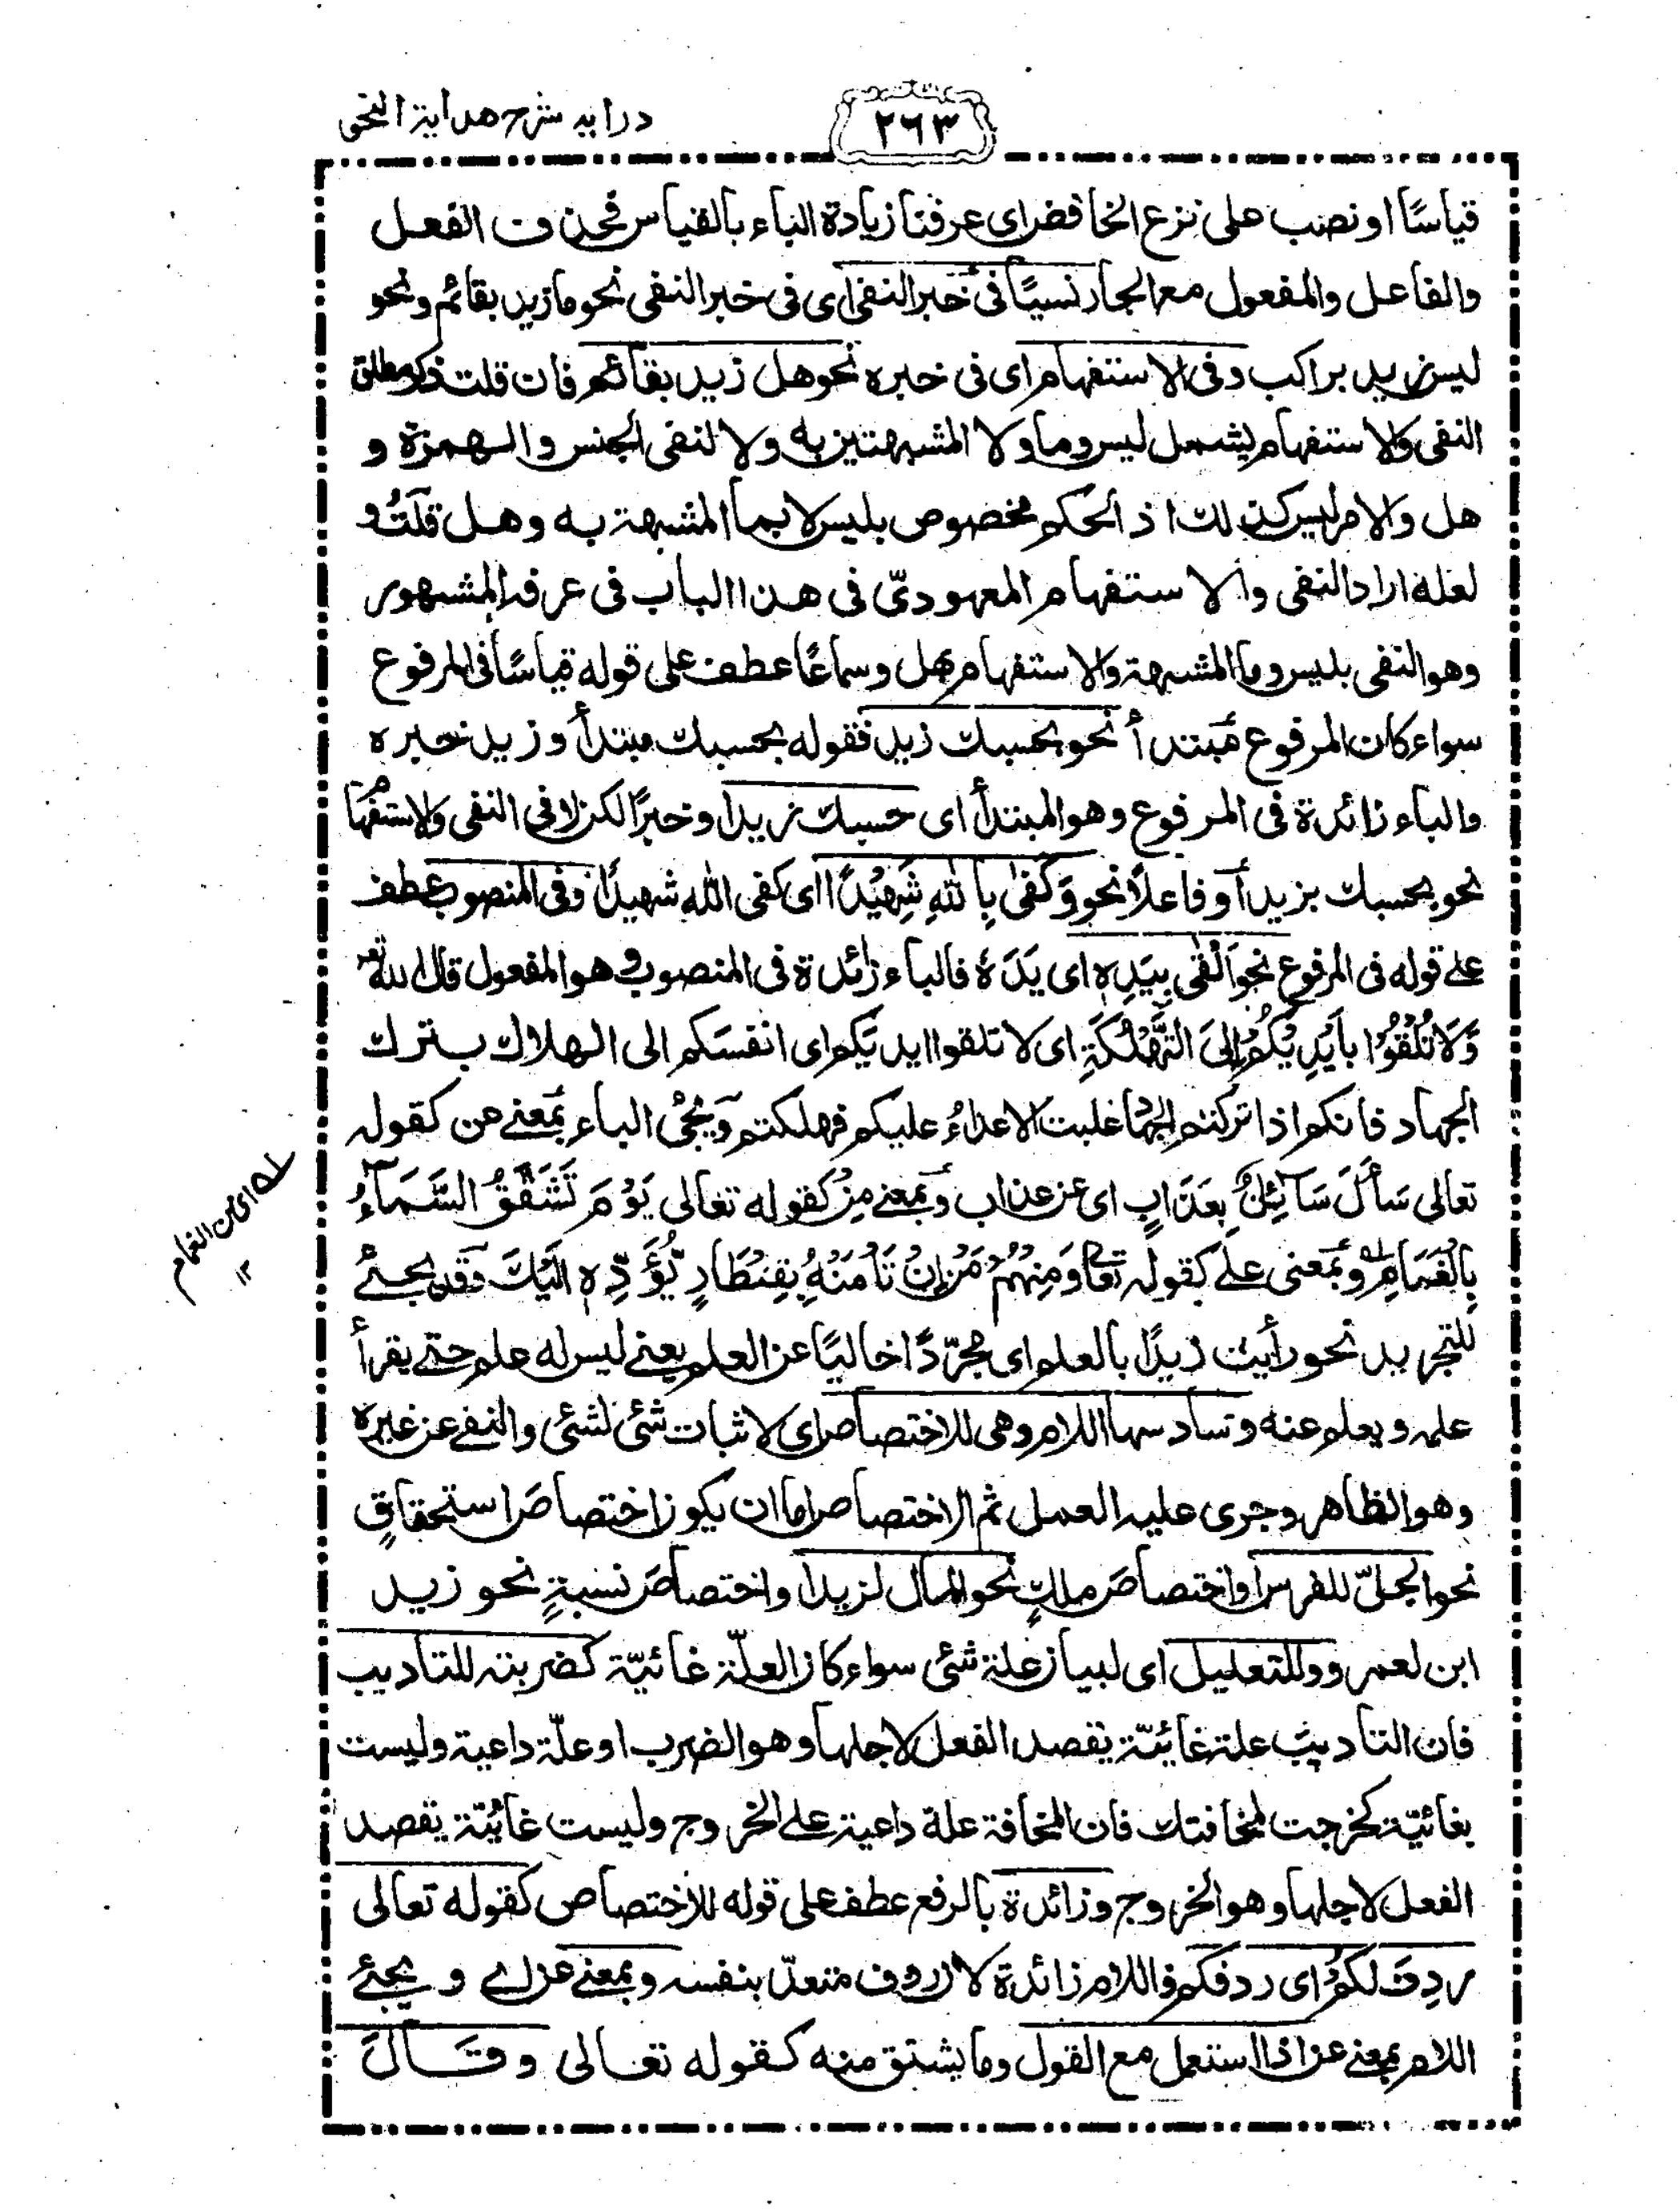 درايه شرح هداية النحو
٢٦٣
قياسًا او نصب على نزع الخافض اى عرفنا زيادة الباء بالقياس فحذف الفعل
والفاعل والمفعول مع الجار نسيًا فى خبر النفى اى فى خبر النفى نحو ما زيد بقائم ونحو
ليس زيد براكب وفى الاستفهام اى فى خبره نحو هل زيد بقائم فان قلت ذكر مطلق
النفى والاستفهام يشمل ليس وما ولا المشبهتين به ولا لنفى الجنس والهمزة و
هل والامر ليس كذلك اذ الحكم مخصوص بليس لا بما المشبهة به وهل قلتُ و
لعله اراد النفى والاستفهام المعهودىّ فى هذا الباب فى عرفه المشهور
وهو النفى بليس وما المشبهة والاستفهام بهل وسماعًا عطف على قوله قياسًا فى المرفوع
سواء كان المرفوع مبتدأ نحو بحسبك زيد فقوله بحسبك مبتدأ وزيد خبره
والباء زائدة فى المرفوع وهو المبتدأ اى حسبك زيد او خبرًا لكن لا فى النفى والاستفهام
نحو بحسبك بزيد أو فاعلاً نحو وَكَفٰى بِاللهِ شَهِيْدًا اى كفى الله شهيدًا وفى المنصوب عطف
على قوله فى المرفوع نحو اَلْقٰى بِيَدِهٖ اى يَدَهٗ فالباء زائدة فى المنصوب وهو المفعول قال الله تعـ
وَلَا تُلْقُوْا بِأَيْدِيْكُمْ اِلَى التَّهْلُكَةِ اى لا تلقوا ايديَكم اى انفسَكم الى الهلاك بترك
الجهاد فانكم اذا تركتم الجهاد غلبت الاعداءُ عليكم فهلكتم ويجئ الباء بمعنے عن كقوله
تعالى سَأَلَ سَآئِلٌ بِعَذَابٍ اى عن عذاب وبمعنے مِنْ كقوله تعالى يَوْمَ تَشَقَّقُ السَّمَآءُ
بِالْغَمَامِ وبمعنى علے كقوله تعالى وَمِنْهُمْ مَّنْ اِنْ تَأْمَنْهُ بِقِنْطَارٍ يُّؤَدِّهٖ اِلَيْكَ وقد يجئے
للتجريد نحو رأيت زيدًا بالعلم اى مجرّدًا خاليًا عن العلم يعنے ليس له علم حتے يقرأ
علمه ويعلم عنه وسادسها اللام وهى للاختصاص اى لاثبات شئ لشئ والنفے عن غيره
وهو الظاهر وجرى عليه العمل ثم الاختصاص اما ان يكون اختصاصَ استحقاقٍ
نحو الجلّ للفرس او اختصاصَ ملكٍ نحو المال لزيد او اختصاصَ نسبةٍ نحو زيد
ابن لعمرو وللتعليل اى لبيان علة شئ سواء كان العلّة غائيّة كضربته للتاديب
فان التاديبَ علة غائيّة يقصد الفعل لاجلها وهو الضرب او علّة داعية وليست
بغائيّة كخرجت لمخافتك فان المخافة علة داعية علے الخروج وليست غائيّة يقصد
الفعل لاجلها وهو الخروج وزائدة بالرفع عطف على قوله للاختصاص كقوله تعالى
رَدِفَ لَكُمْ اى ردفكم فاللام زائدة لان ردف متعدّ بنفسه وبمعنے عن اے و يجئے
اللام بمعنے عن اذا استعمل مع القول وما يشتق منه كقوله تعالى وقَالَ
لہ اى من الغمام
١٢